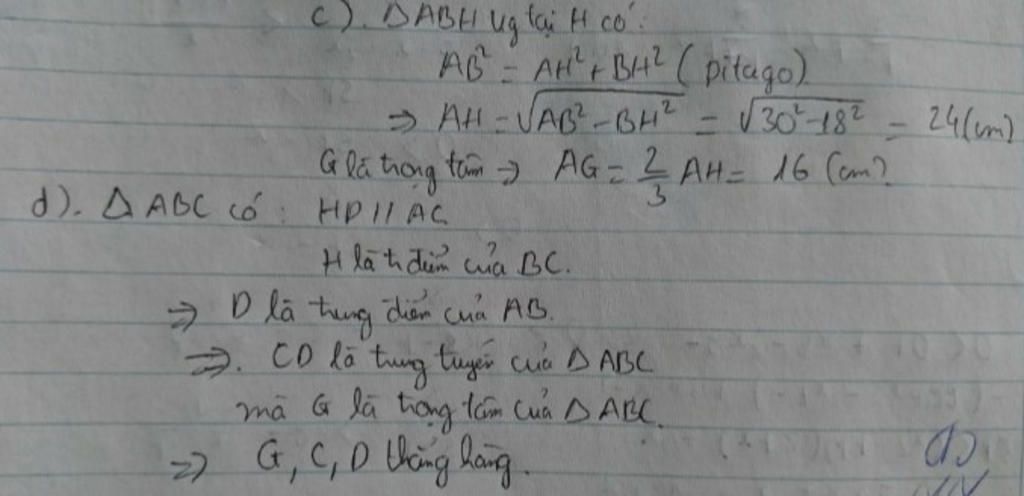 c). ΔABH vg tại H có:
AB² = AH² + BH² (pitago)
⇒ AH = √AB² - BH² = √30² - 18² = 24(cm)
G là trọng tâm ⇒ AG = 2/3 AH = 16 (cm).
d). Δ ABC có: HD // AC
H là t điểm của BC.
⇒ D là trung điểm của AB.
⇒. CD là trung tuyến của Δ ABC
mà G là trọng tâm của Δ ABC.
⇒ G, C, D thẳng hàng.